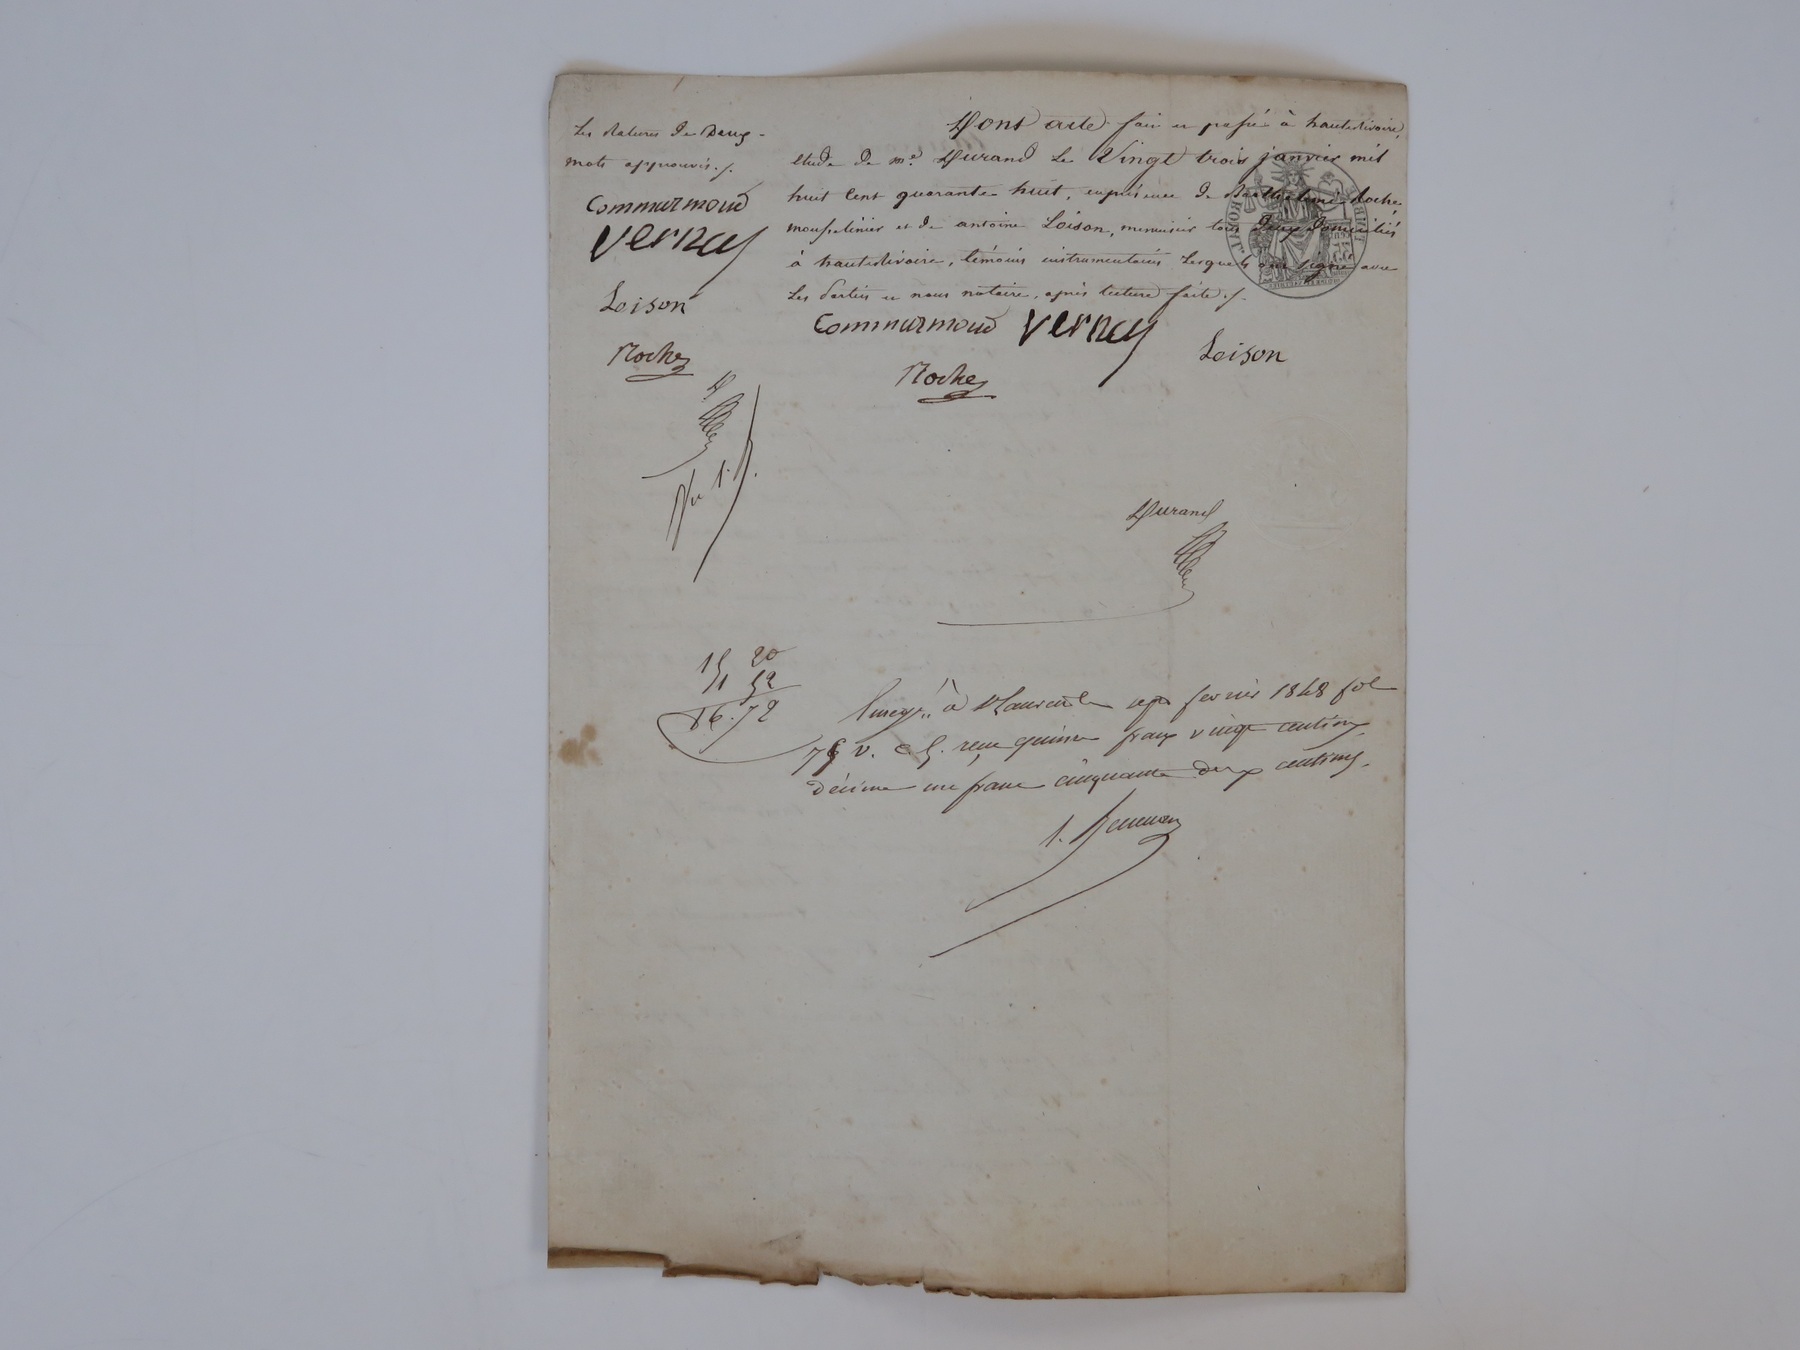 Les ratures de Deux
mots approuvés./.
Commarmond
Vernay
Loison
Roche
Dont acte fait et passé à hauterivoire,
étude de me. Durand Le Vingt trois janvier mil
huit cent quarante huit, en présence de Barthélemi Roche
mousselinier et de antoine Loison, menuisier tous Deux Domiciliés
à hauterivoire, témoins instrumentaires Lesquels ont signé avec
Les Parties et nous notaire, après lecture faite./.
Commarmond Vernay
Loison
Roche
TIMBRE ROYAL
Durand
15 20
1 52
16.72
Enregé. à St Laurent le sept fevrier 1848 fol
75 v. c 5. reçu quinze francs vingt centimes,
décime un franc cinquante deux centimes.